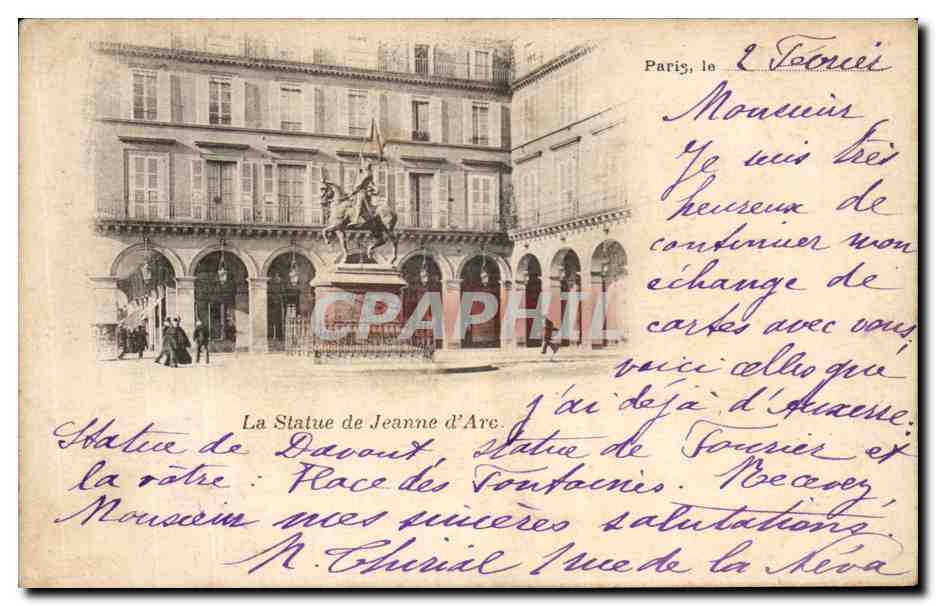 Paris, le 2 Février
Monsieur,
Je suis très
heureux de
continuer mon
échange de
cartes avec vous,
voici celles que
j'ai déjà d'Auxerre.
La Statue de Jeanne d'Arc.
Statue de Davout, statue de Fourier et
la vôtre : Place des Fontaines. Recevez,
Monsieur mes sincères salutations.
rue de la Néva
CPAPHIL